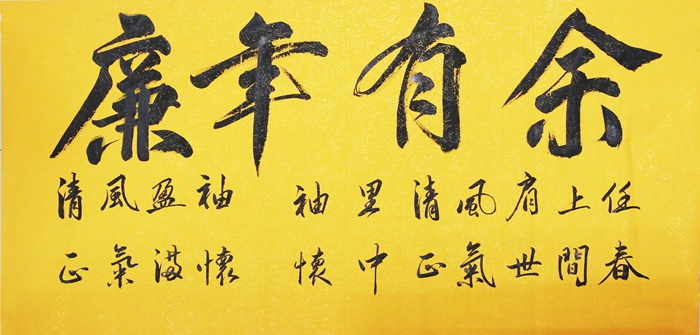 廉年有余
清風盈袖 袖里清風肩上任
正氣滿懷 懷中正氣世間春